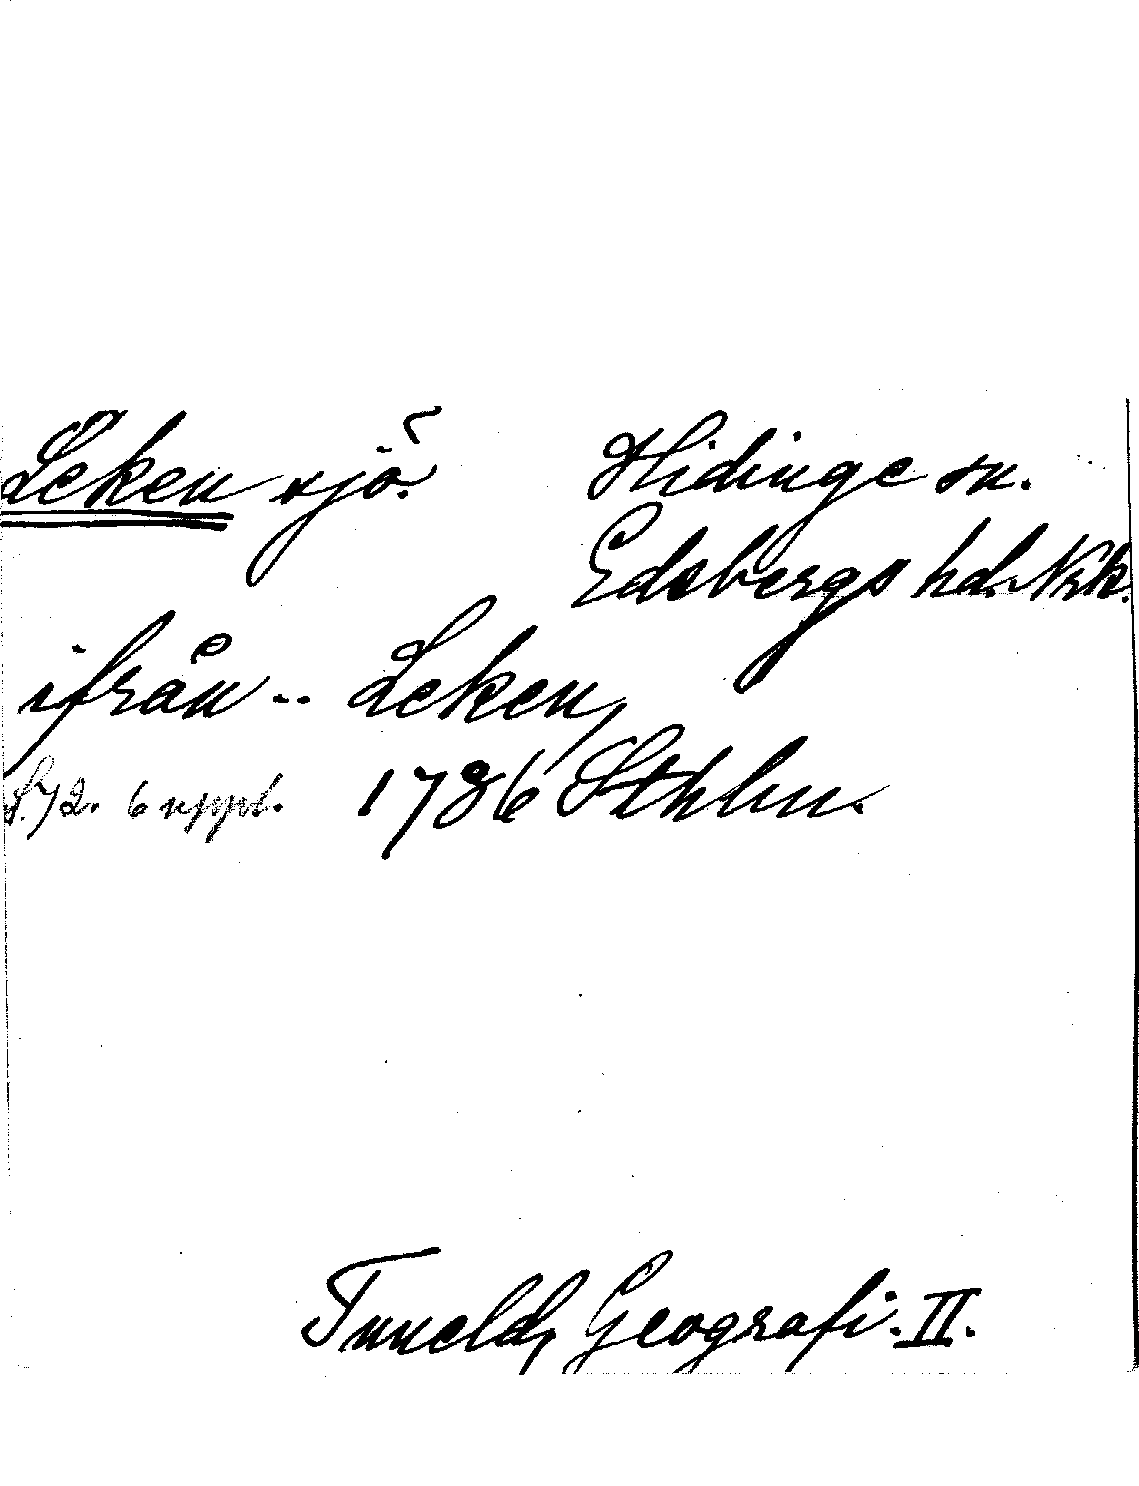 Leken sjö. Hidinge sn.
Edsbergs hd. Nrk.
ifrån -- Leken,
S. 72. 6 uppl. 1786 Sthlm.
Tuneld, Geografi. II.